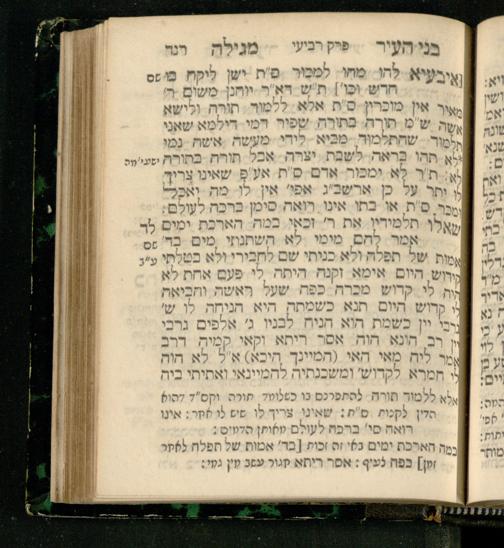 בני העיר פרק רביעי מגילה רנה
[איבעיא להו מהו למכור ס"ת ישן ליקח בו שם
חדש וכו'] ת"ש דא"ר יוחנן משום ר'
מאיר אין מוכרין ס"ת אלא ללמוד תורה ולישא
אשה ש"מ תורה בתורה שפיר דמי דילמא שאני
תלמוד שהתלמוד מביא לידי מעשה אשה נמי
לא תהו בראה לשבת יצרה אבל תורה בתורה ישעי' מה
לא: ת"ר לא ימכור אדם ס"ת אע"פ שאינו צריך
לו יתר על כן ארשב"ג אפי' אין לו מה יאכל
ומכר ס"ת או בתו אינו רואה סימן ברכה לעולם:
שאלו תלמידיו את ר' זכאי במה הארכת ימים לד
אמר להם מימי לא השתנתי מים בד' שם
אמות של תפלה ולא כניתי שם לחבירי ולא בטלתי ע"ב
קידוש היום אימא זקנה היתה לי פעם אחת לא
היה לי קדוש מכרה כפה שעל ראשה והביאה
לי קדוש היום תנא כשמתה היא הניחה לו ש'
גרבי יין כשמת הוא הניח לבניו ג' אלפים גרבי
יין רב הונא הוה אסר ריתא וקאי קמיה דרב
אמר ליה מאי האי (המיינך היכא) א"ל לא הוה
לי חמרא לקדוש' ומשכנתיה להמיינאי ואתיתי ביה
אלא ללמוד תורה להתפרנס בו כשלומד תורה וקס"ד דהוא
הדין לקנות ס"ת: שאינו צריך לו שיש לו אחר: אינו
רואה סי' ברכה לעולם מאותן הדמים:
במה הארכת ימים באי זה זכות [בד' אמות של תפלה לאחר
זמן] כפה לעיף: אסר ריתא חגור עשב מין גמי: